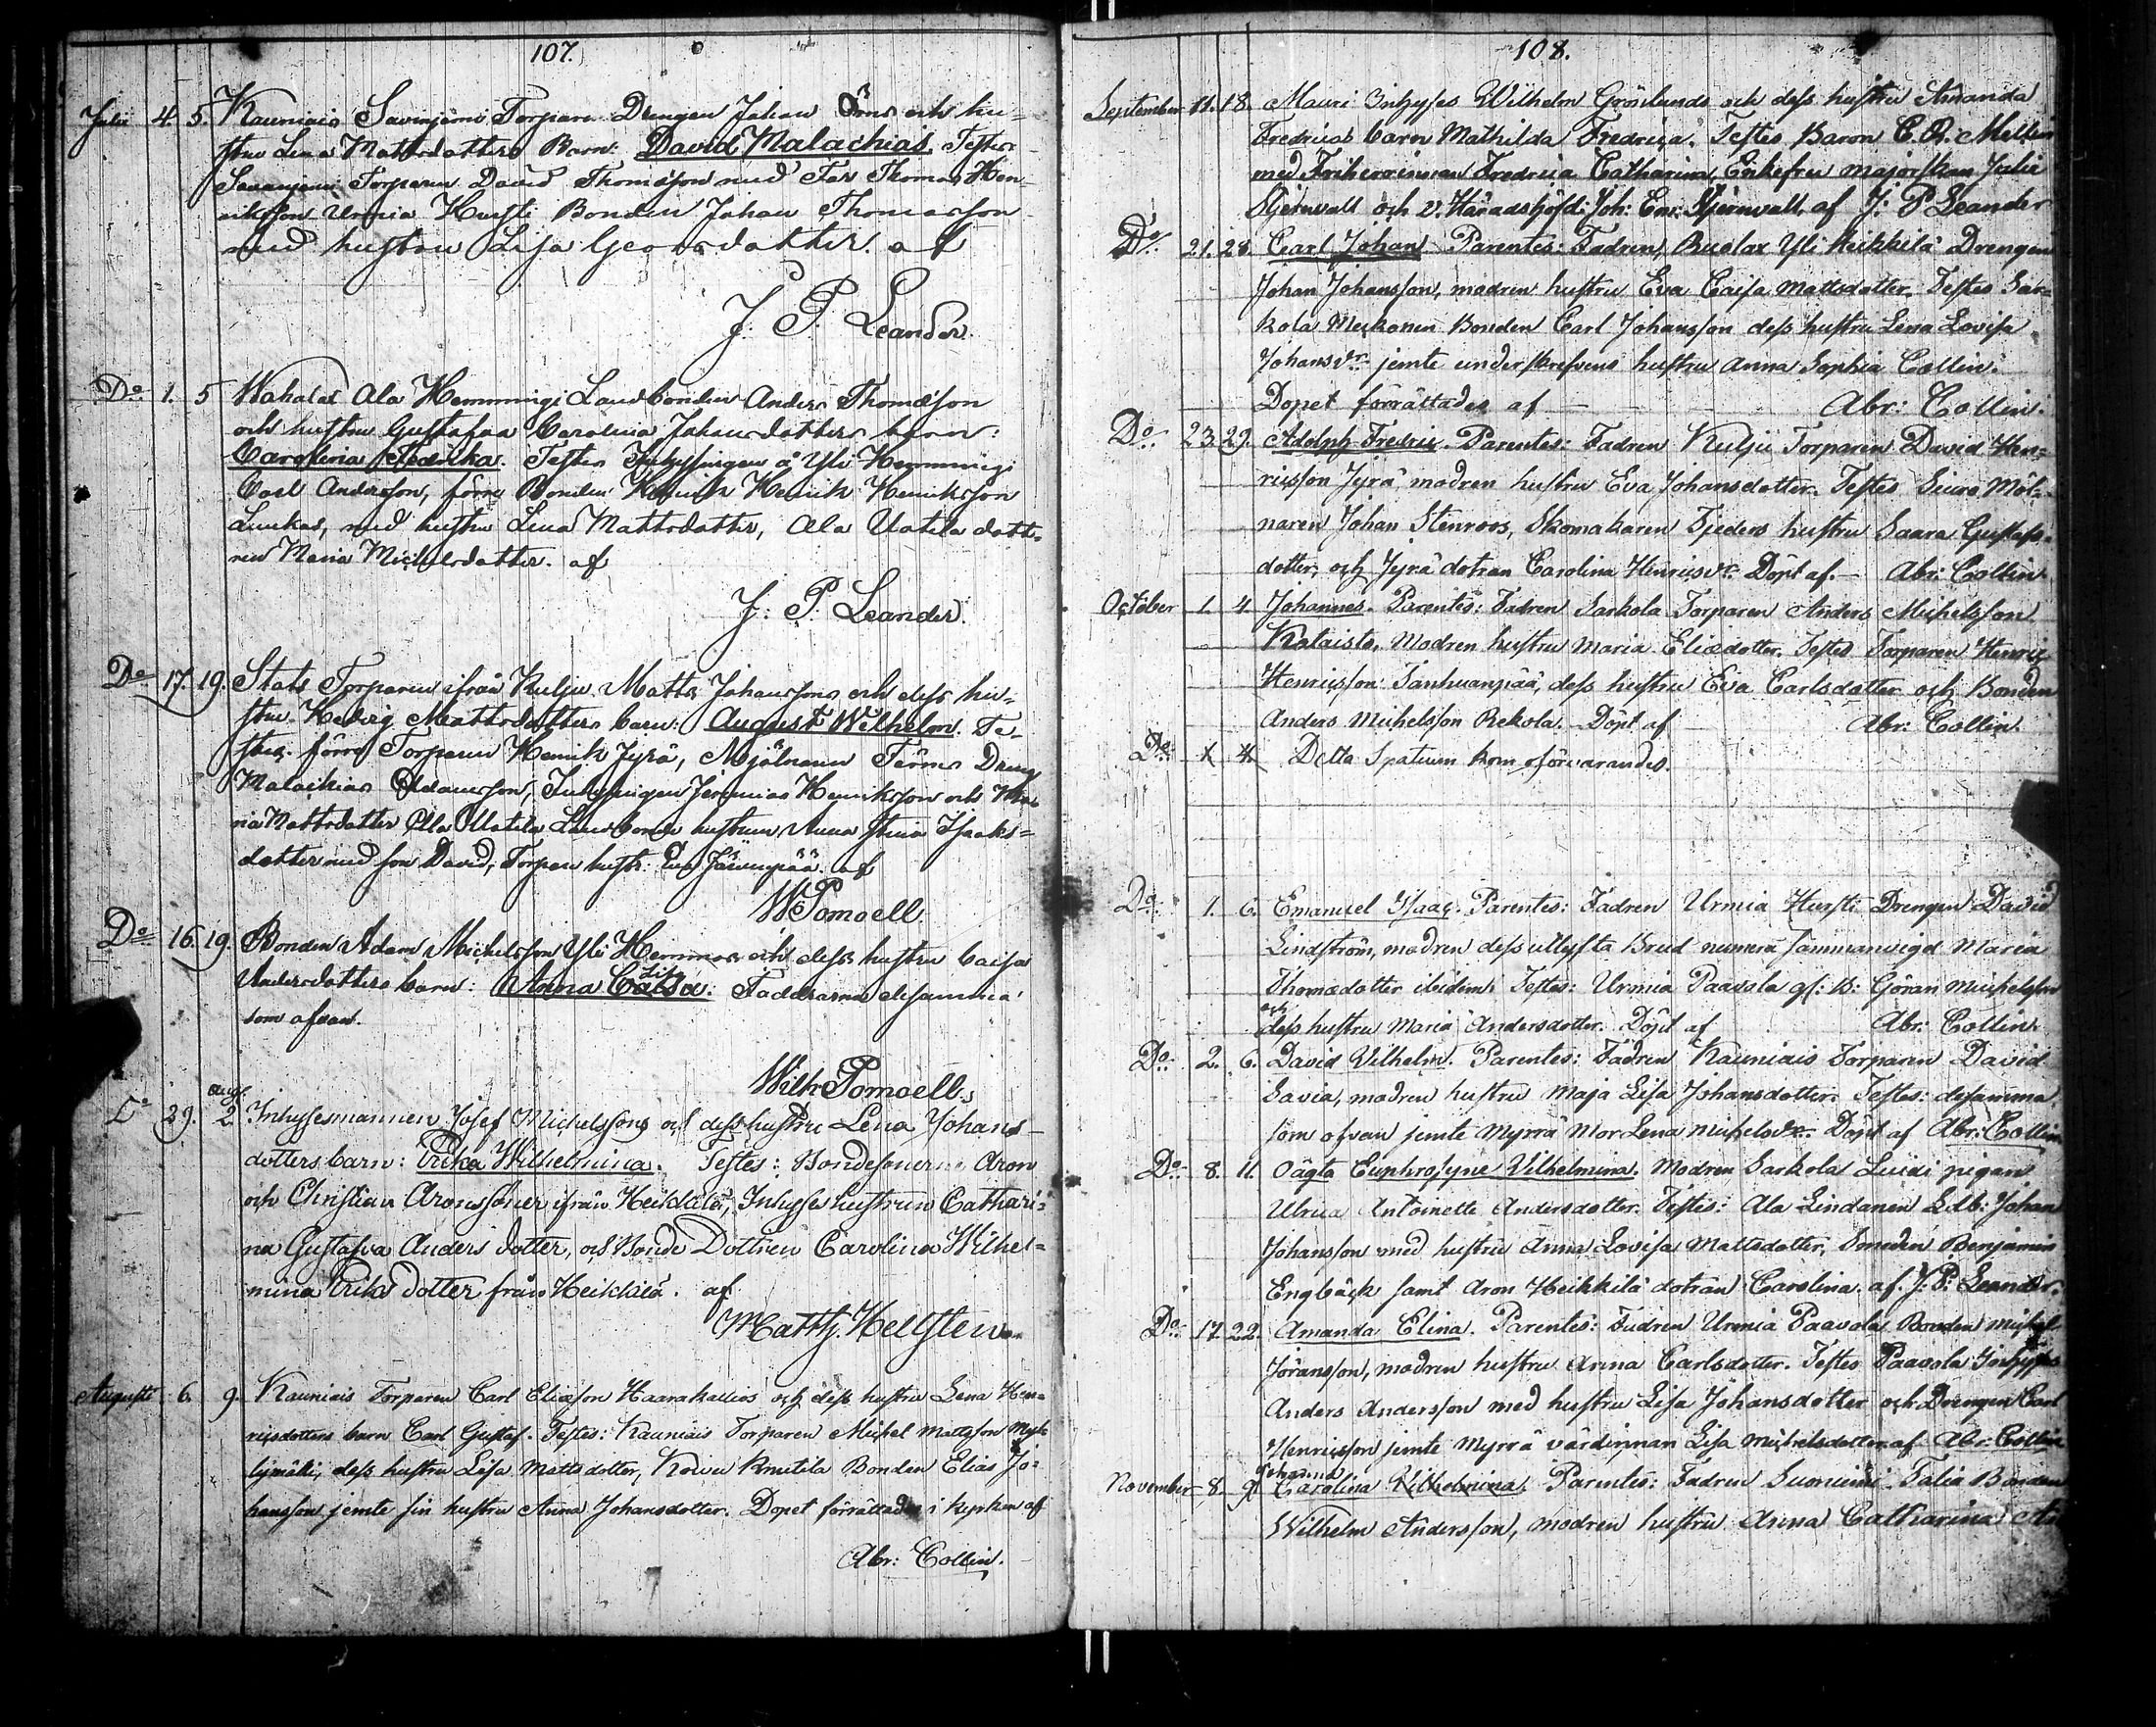 107.
Julii 4. 5. Kauniais Savinjärvi Torpare Drengen Johan Örns och hu=
stru Lena Mattsdotters Barn: David Malachias. Testes
Savinjärvi Torparen David Thomasson med Far Thomas Hen-
riksson Urmia Hursti Bonden Johan Thomasson
med hustru Lisa Georgsdotter. af
J. P. Leander.
Do. 1. 5 Wahalax Ala Hemmingi Landbonden Anders Thomasson
och hustru Gustafva Carolina Johansdotters barn:
Carolina Fredrika. Testes Inhysingen å Yli Hemmingi
Carl Andersson, förre Bonden Henrik Henriksson
Luukas, med hustru Lena Mattsdotter, Ala Uotila dott-
ren Maria Michelsdotter. af
J: P: Leander.
Do 17. 19. Stats Torparen ifrån Kulju Matts Johanssons och dess hu-
stru Hedvig Mattsdotters barn: August Wilhelm. Te-
stes. förre Torparen Henrik Jyrä, Mjölnaren Dreng
Malachias Adamsson, Inhysingen Jeremias Henriksson och Ma-
ria Mattsdotter Ala Uotila Landbonde hustrun Anna Stina Isaks=
dotter med son David, Torpare hustr: Eva Järvenpää. af
W Pomoell
Do 16. 19. Bonden Adam Michelsson Yli Hemmos och dess hustru Caisa
Andersdotters barn: Anna Caisa Lisa. Faddrarna desamma
som ofvan.
Wilh Pomoell.
Do 29. Aug. 2 Inhysesmannen Josef Michelssons och dess hustru Lena Johans-
dotters barn: Erika Wilhelmina. Testes: Bondesönerne Aron
och Christian Aronssöner ifrån Heikkilä, Inhyseshustrun Cathari-
na Gustafva Anders dotter, och Bonde Dottren Carolina Wilhel=
mina Eriks dotter från Heikkilä. af
Matth. Hellsten
Augusti 6. 9. Kauniais Torparen Carl Eliasson Haarakallios och dess hustru Lena Hen=
ricsdotters barn Carl Gustaf. Testes: Kauniais Torparen Michel Mattsson Myl-
lymäki, dess hustru Lisa Mattsdotter, Knutila Bonden Elias Jo-
hansson jemte sin hustru Anna Johansdotter. Dopet förrättades i kyrkan af
Abr: Collin.
108.
September 11. 18. Mauri Inhyses Wilhelm Grönlunds och dess hustru Amanda
Fredricas barn Mathilda Fredrica. Testes Baron C. R. Mellin
med Friherrinnan Fredrica Catharina, Enkefru majorskan Julie
Stjernvall och v. Häradshöfd: Joh: Enr: Stjernvall. af J: P Leander
Do. 21. 28. Carl Johan. Parentes: Fadren, Ruolax Yli Heikkilä Drengen
Johan Johansson, modren hustru Eva Caisa Mattsdotter. Testes Sar=
kola Meskanen Bonden Carl Johansson dess hustru Lena Lovisa
Johansdr. jemte underskrefvens hustru Anna Sophia Collin.
Dopet förrättades af — Abr: Collin.
Do. 23. 29. Adolph Fredric. Parentes: Fadren Kulju Torparen David Hen=
ricsson Jyrä, modren hustru Eva Johansdotter. Testes Siuro Möl=
naren Johan Stenroos, Skomakaren Tjeders hustru Saara Gustafs-
dotter, och Jyrä dotran Carolina Henricsdr. Döpt af. — Abr: Collin.
October 1. 4. Johannes. Parentes: Fadren Sarkola Torparen Anders Michelsson
Kataisto, Modren hustru Maria Eliædotter. Testes Torparen Henric
Henricsson Tanhuanpää, dess hustru Eva Carlsdotter och Bonden
Anders Michelsson Rekola. Döpt af Abr: Collin.
Do. 1 4. Detta Spatium kom oförvarandes.
Do. 1. 6. Emanuel Isaac. Parentes: Fadren Urmia Hursti Drengen David
Lindström, modren dess utlysta Brud numera sammanvigd Maria
Thomædotter ibidem. Testes: Urmia Paavola gl: B: Göran Michelsson
och dess hustru Maria Andersdotter. Döpt af Abr: Collin.
Do. 2. 6. David Vilhelm. Parentes: Fadren Kauniais Torparen David
Savia, modren hustru Maja Lisa Johansdotter. Testes: desamma
som ofvan jemte Myrrä Mor Lena Michelsdr. Döpt af Abr: Collin
Do. 8. 11. Oägta Euphrosyne Vilhelmina. Modren Sarkola Luidi pigan
Ulrica Antoinette Andersdotter. Testes: Ala Lindanen Ldb: Johan
Johansson med hustru Anna Lovisa Mattsdotter, Smeden Benjamin
Engbäck samt Aron Heikkilä dotran Carolina. af. J: P: Leander.
Do. 17. 22. Amanda Elina. Parentes: Fadren Urmia Paavola Bonden Michel
Jöransson, modren hustru Anna Carlsdotter. Testes Paavola Inhyses
Anders Andersson med hustru Lisa Johansdotter och Drengen Carl
Henricsson jemte Myrrä värdinnan Lisa Michelsdotter. af Abr: Collin
November 8. 9. Johanna Carolina Vilhelmina. Parentes: Fadren Suoniemi Talia Bonden
Wilhelm Andersson, modren hustru Anna Catharina